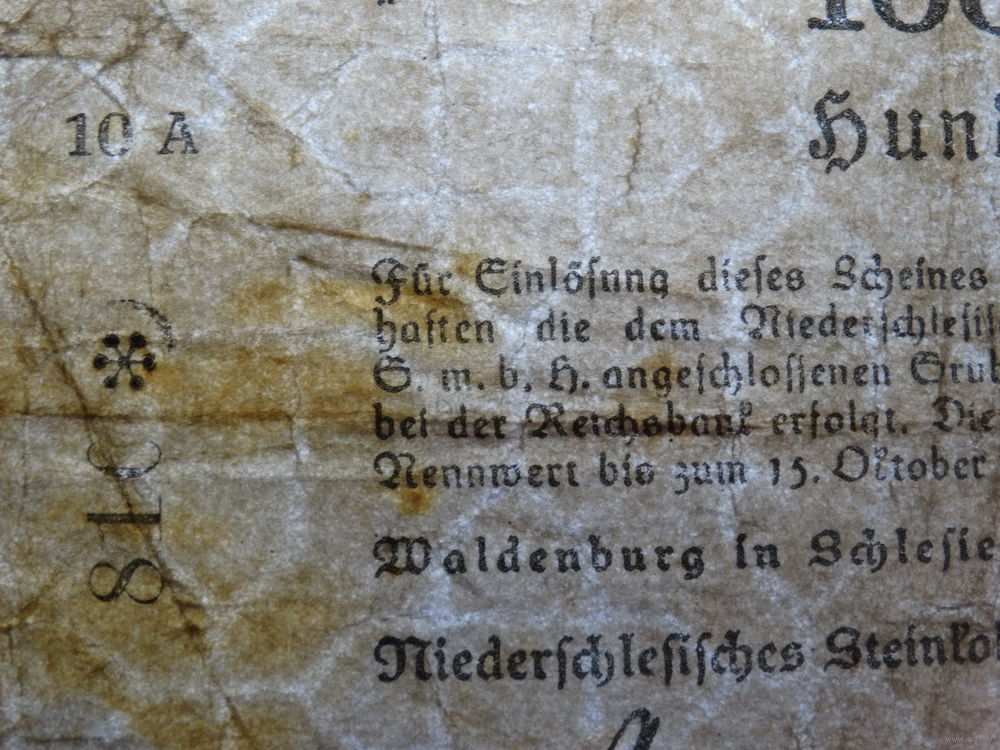 100
10 A
Hun
Für Einlösung dieses Scheines
haften die dem Niederschlesis
G. m. b. H. angeschlossenen Grub
bei der Reichsbank erfolgt. Die
Nennwert bis zum 15. Oktober
Waldenburg in Schlesie
Niederschlesisches Steinko